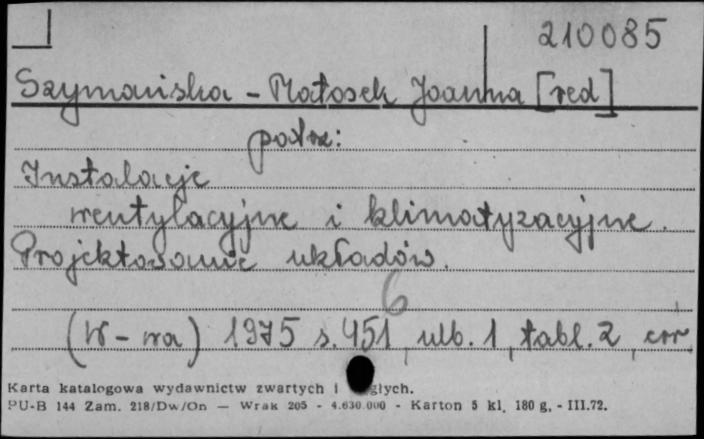 210085
Szymańska - Matosek Joanna [red]
patrz:
Instalacje
wentylacyjne i klimatyzacyjne.
Projektowanie układów.
6
(W-wa) 1975 s. 451, ulb. 1, tabl. 2, err
Karta katalogowa wydawnictw zwartych i głych.
PU-B 144 Zam. 218/Dw/On — Wrak 205 - 4.630.000 - Karton 5 kl. 180 g. - III.72.